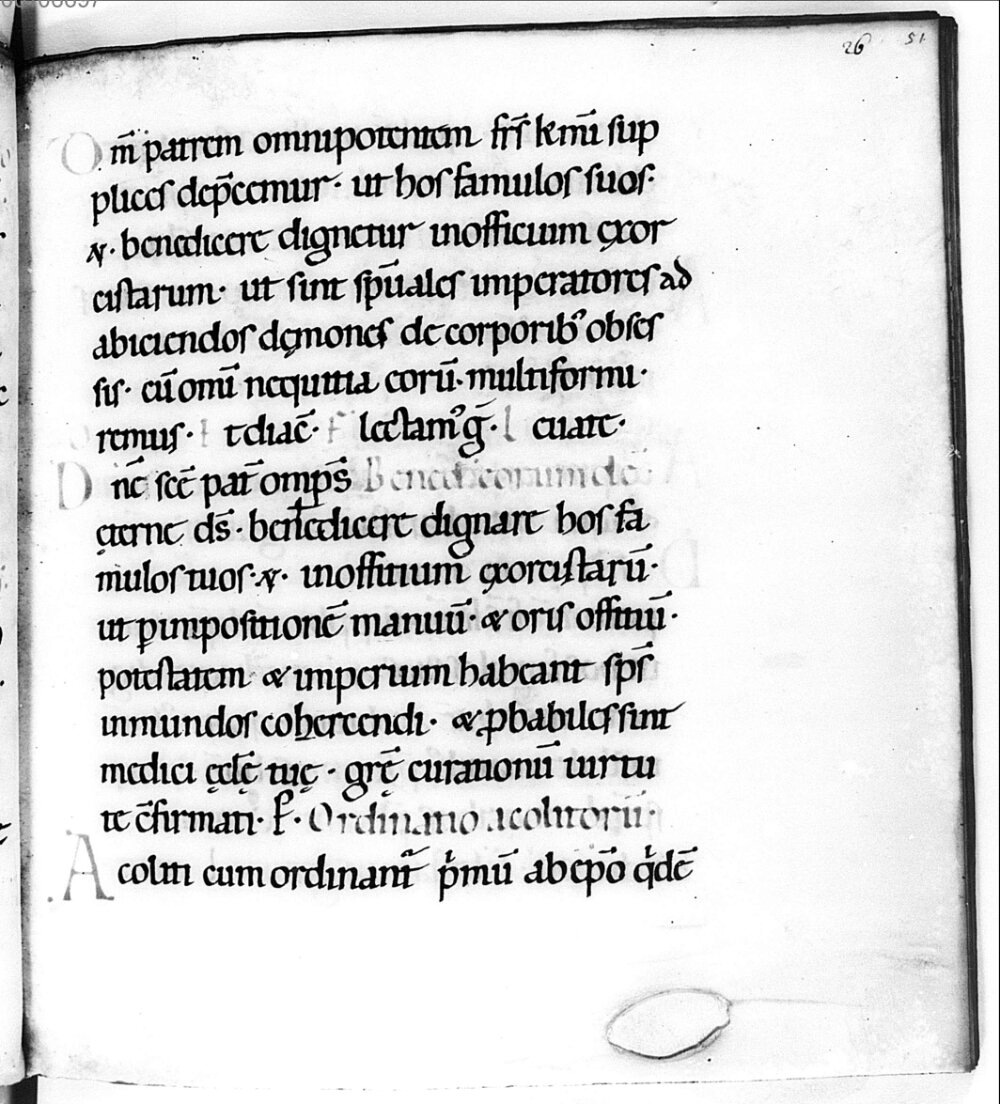 26 51
Dm̄ patrem omnipotentem frs̄ kmī sup
plices dep̄cemur · ut hos famulos suos·
N · benedicere dignetur inofficium ęxor
cistarum · ut sint sp̄uales imperatores ad
abiciendos dęmones de corporib' obses
sis · cū omī nequitia eorū · multiformi·
remus · t diac̄ · F lectam' g̅ · l euate·
Dnē scē pat̄ omps̄ Benedic eorum dē
ęterne ds̄ · benedicere dignare hos fa
mulos tuos · N · inoffitium ęxorcistarū·
ut ꝑ impositionē manuū · & oris offitiū·
potestatem & imperium habeant sps̄
inmundos cohercendi · & ꝓbabiles sint
medici ęcłę tuę · grę̄ curationū uirtu
te c̄firmati · P̄ · Ordinatio acolitorū·
Acoliti cum ordinant̄ pͥmū ab ep̄o qͥdē